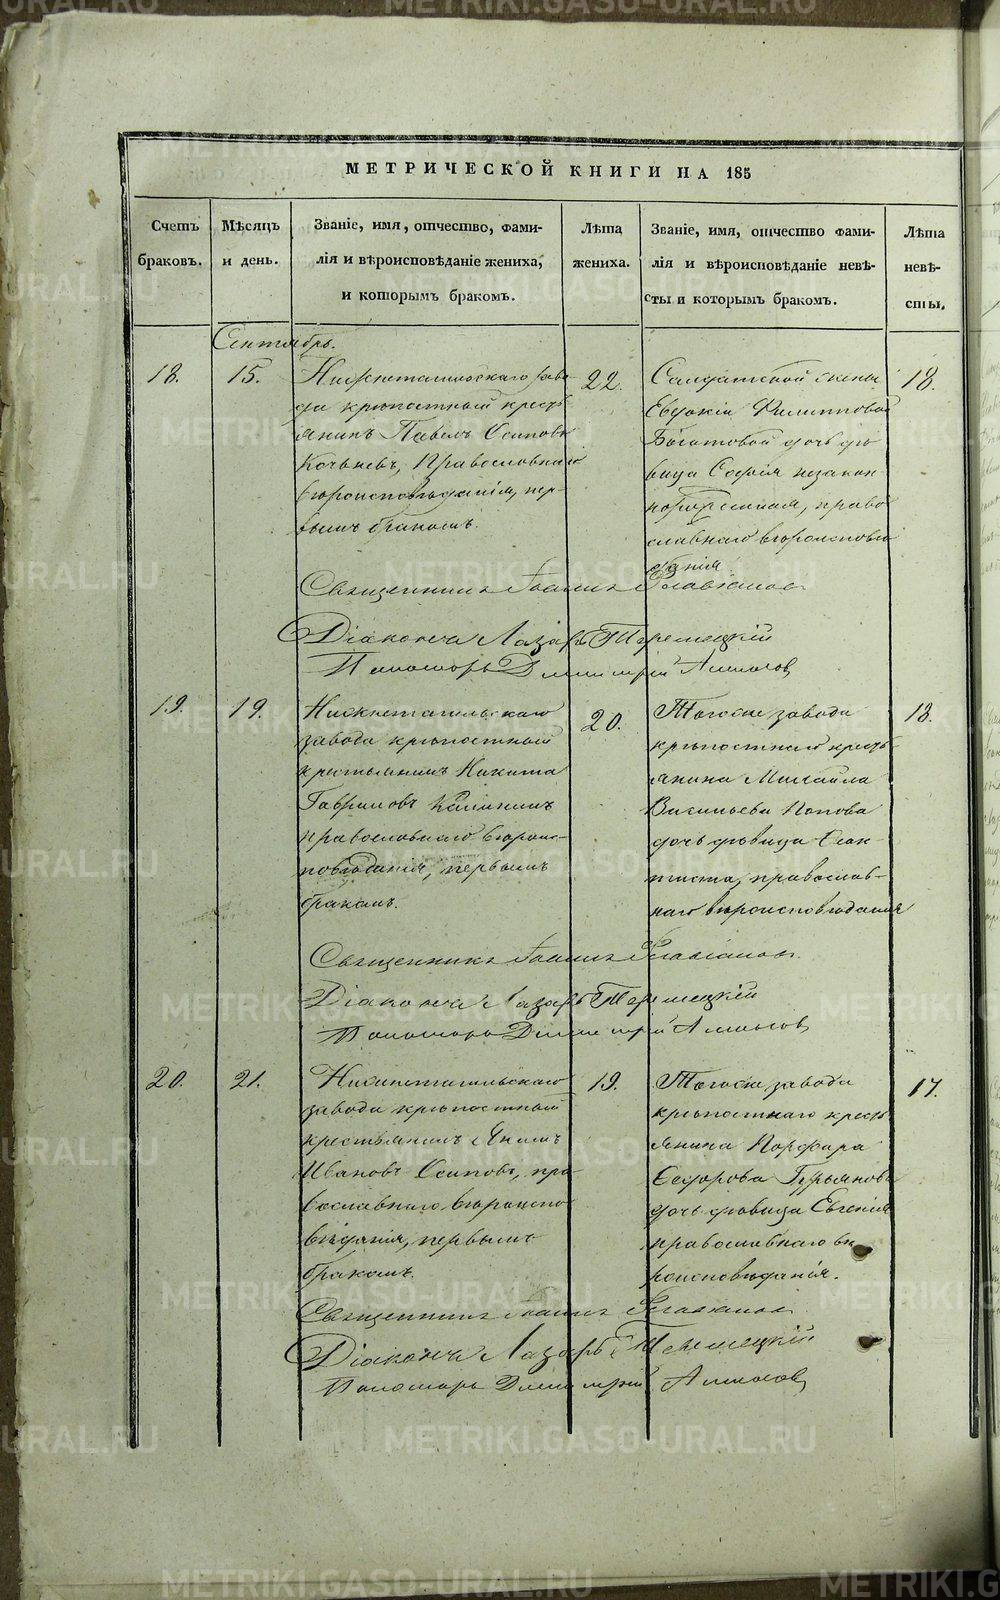 МЕТРИЧЕСКОЙ КНИГИ НА 185
Счетъ
браковъ.
Мѣсяцъ
и день.
Званіе, имя, отчество, фами-
лія и вѣроисповѣданіе жениха,
и которымъ бракомъ.
Лѣта
жениха.
Званіе, имя, отчество фами-
лія и вѣроисповѣданіе невѣ-
сты и которымъ бракомъ.
Лѣта
невѣ-
сты.
Сентябрь.
18.
15.
Нижнетагильскаго заво-
да крѣпостный кресть
янинъ Павелъ Осиповъ
Православнаго
вѣроисповѣданія, пер-
вымъ бракомъ.
22.
Салдатской жены
Евдокіи Филипповой
Богатовой дочь дѣ
вица Софія незакон
норожденная, право
славнаго вѣроисповѣ
данія.
18.
Священникъ Іоаннъ
Діаконъ Лазарь
Пономарь Димитрій
19.
19.
Нижнетагильскаго
завода крѣпостный
крестьянинъ Никита
Гавриловъ Калининъ
православнаго вѣроис-
повѣданія, первымъ
бракомъ.
20.
Тогоже завода
крѣпостнаго кресть-
янина Михаила
Васильева Попова
дочь дѣвица
православ-
наго вѣроисповѣданія
18.
Священникъ Іоаннъ
Діаконъ Лазарь
Пономарь Димитрій
20.
21.
Нижнетагильскаго
завода крѣпостный
крестьянинъ Якимъ
Ивановъ Осиповъ, пра
вославнаго вѣроиспо
вѣданія, первымъ
бракомъ.
19.
Тогоже завода
крѣпостнаго кресть
янина Порфира
Ѳедорова Гурьянова
дочь дѣвица Евгенія
православнаго вѣ
роисповѣданія.
17.
Священникъ Іоаннъ
Діаконъ Лазарь
Пономарь Димитрій
METRIKI.GASO-URAL.RU